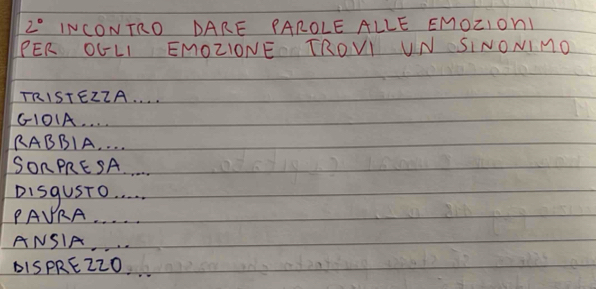 2° INCONTRO DARE PAROLE ALLE EMOZIONI
PER OGLI EMOZIONE TROVI UN SINONIMO
TRISTEZZA....
GIOIA....
RABBIA....
SORPRESA....
DISGUSTO.....
PAURA......
ANSIA.....
DISPREZZO...